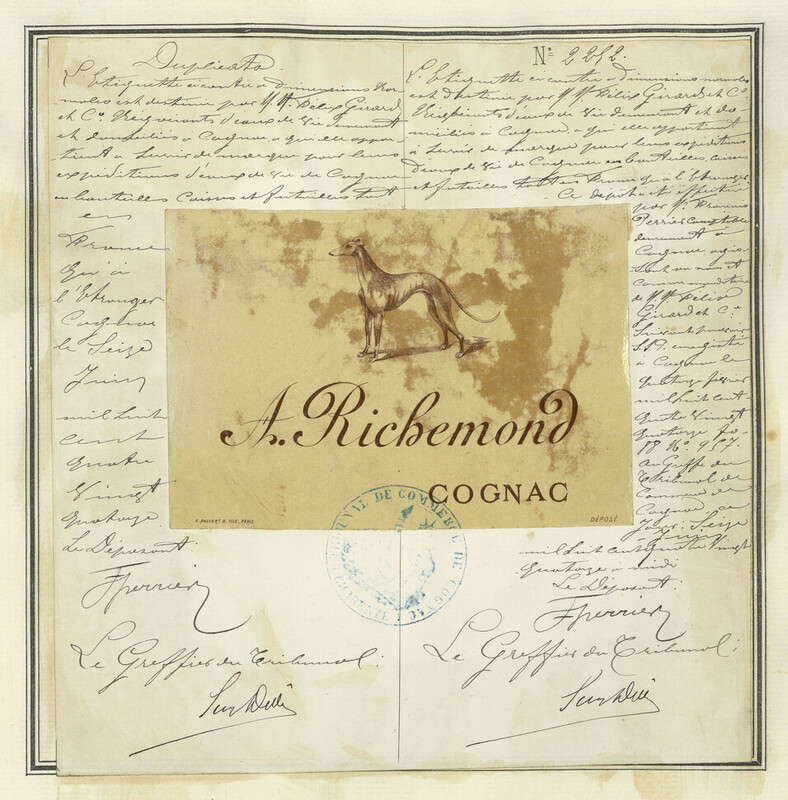 Duplicata
L'Etiquette ci contre à dimensions Nor-
males est destinée par MM. Félix Girard
et Co. Négociants d'eaux de Vie demeurant
et domiciliés à Cognac, à qui elle appar-
tient à servir de marque pour leurs
expéditions d'eaux de Vie de Cognac
en bouteilles Caisses et futailles tant
en
France
qu'à
l'Etranger
Cognac
le Seize
Juin
mil huit
cent
quatre
Vingt
quatorze
Le Déposant:
Fperrier
Le Greffier du Tribunal:
No 2252.
L'Etiquette ci contre à dimensions normales
est destinée par MM. Félix Girard et Co.
Négociants d'eaux de Vie demeurant et do-
miciliés à Cognac, à qui elle appartient
à servir de marque pour leurs expéditions
d'eaux de Vie de Cognac en bouteilles, caisses
et futailles tant en France qu'à l'Etranger
Ce dépôt a été effectué
par M. Francis
Perrier comptable
demeurant à
Cognac, agis-
sant au nom et
comme mandataire
de MM. Félix
Girard et Co.
Suivant pouvoir
S.S.P. enregistré
à Cognac le
quatorze février
mil huit cent
quatre Vingt
quatorze fo.
18 No. 957.
Au Greffe du
Tribunal de
Commerce de
Cognac, ce
Jour: Seize
Juin
mil huit cent quatre Vingt
quatorze à midi
Le Déposant:
Fperrier
Le Greffier du Tribunal:
A. Richemond
COGNAC
DÉPOSÉ
TRIBUNAL DE COMMERCE DE COGNAC
CHARENTE